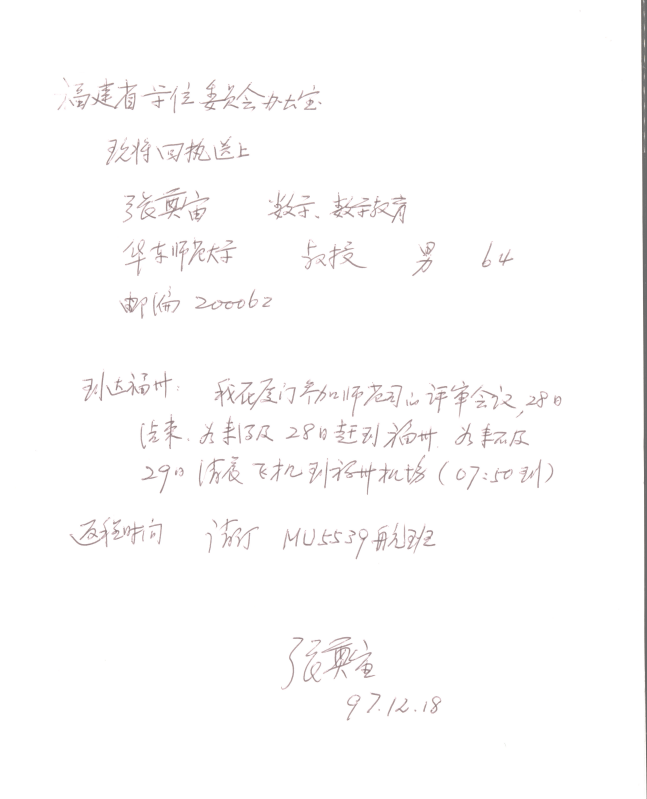 福建省学位委员会办公室
现将回执送上
张奠宙 数学、数学教育
华东师范大学 教授 男 64
邮编 200062
到达福州: 我在厦门参加师范司的评审会议,28日
结束.若来得及 28日赶到福州.若来不及
29日清晨飞机到福州机场(07:50到)
返程时间 请订 MU5539航班
张奠宙
97.12.18